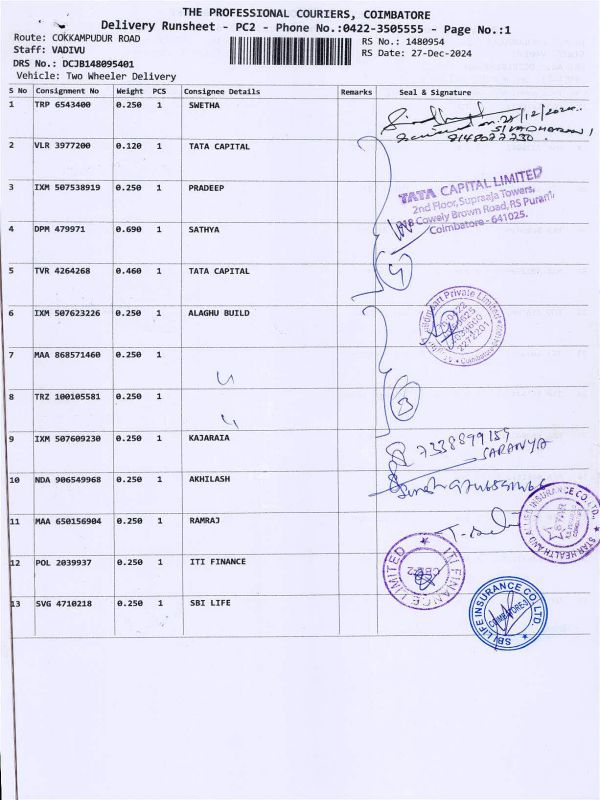 THE PROFESSIONAL COURIERS, COIMBATORE
Delivery Runsheet - PC2 - Phone No.:0422-3505555 - Page No.:1
Route: COKKAMPUDUR ROAD
RS No.: 1480954
Staff: VADIVU
RS Date: 27-Dec-2024
DRS No.: DCJB148095401
Vehicle: Two Wheeler Delivery
S No Consignment No Weight PCS Consignee Details Remarks Seal & Signature
1 TRP 6543400 0.250 1 SWETHA
8148022230.
2 VLR 3977200 0.120 1 TATA CAPITAL
3 IXM 507538919 0.250 1 PRADEEP
TATA CAPITAL LIMITED
2nd Floor, Supraaja Towers,
Cowely Brown Road, RS Puram,
Coimbatore - 641025.
4 DPM 479971 0.690 1 SATHYA
4
5 TVR 4264268 0.460 1 TATA CAPITAL
6 IXM 507623226 0.250 1 ALAGHU BUILD
Private Limited
7 MAA 868571460 0.250 1
8 TRZ 100105581 0.250 1
3
9 IXM 507609230 0.250 1 KAJARAIA
7338899159
SARANYA
10 NDA 906549968 0.250 1 AKHILASH
11 MAA 650156904 0.250 1 RAMRAJ
STAR HEALTH AND ALLIED INSURANCE CO. LTD.
12 POL 2039937 0.250 1 ITI FINANCE
ITI FINANCE LIMITED
13 SVG 4710218 0.250 1 SBI LIFE
SBI LIFE INSURANCE CO. LTD.